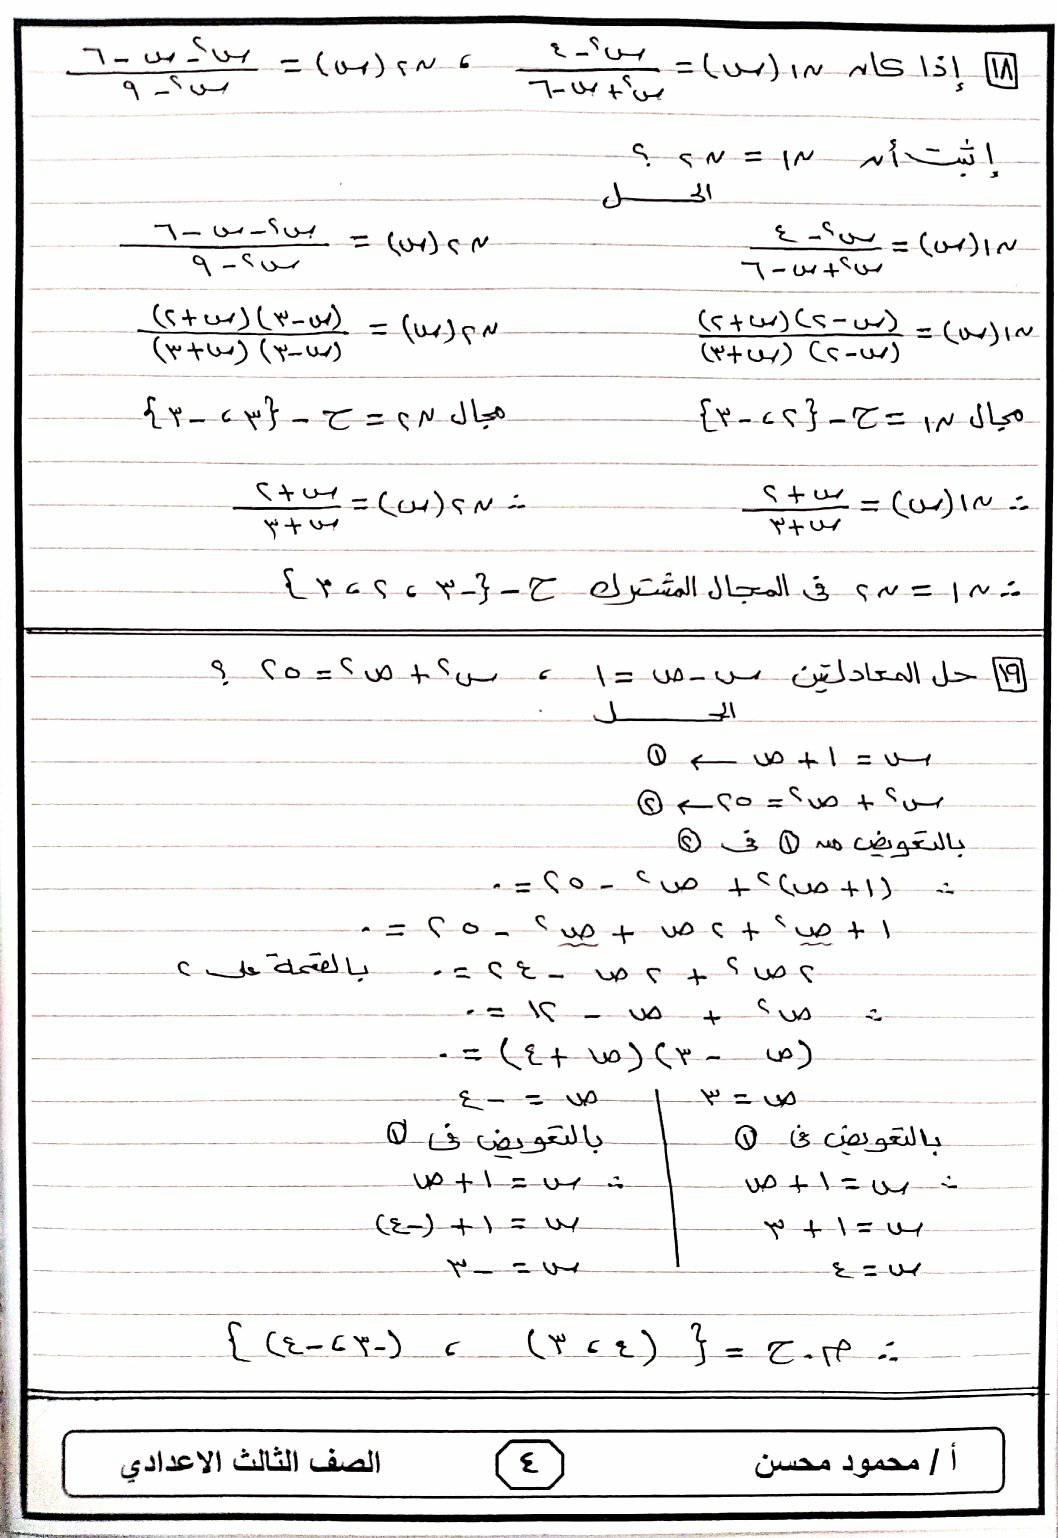 ١٨ إذا كان ن١(س) = (س٢ - ٤)/(س٢ + س - ٦) ، ن٢(س) = (س٢ - س - ٦)/(س٢ - ٩)
إثبت أن ن١ = ن٢ ؟
الحـــل
ن١(س) = (س٢ - ٤)/(س٢ + س - ٦)    ن٢(س) = (س٢ - س - ٦)/(س٢ - ٩)
ن١(س) = (س - ٢)(س + ٢)/(س - ٢)(س + ٣)    ن٢(س) = (س - ٣)(س + ٢)/(س - ٣)(س + ٣)
مجال ن١ = ح - {٢ ، -٣}    مجال ن٢ = ح - {٣ ، -٣}
∴ ن١(س) = (س + ٢)/(س + ٣)    ∴ ن٢(س) = (س + ٢)/(س + ٣)
∴ ن١ = ن٢ فى المجال المشترك ح - {-٣ ، ٢ ، ٣}
١٩ حل المعادلتين س - ص = ١ ، س٢ + ص٢ = ٢٥ ؟
الحـــل
س = ١ + ص ← ①
س٢ + ص٢ = ٢٥ ← ②
بالتعويض من ① فى ②
∴ (١ + ص)٢ + ص٢ - ٢٥ = ٠
١ + ص٢ + ٢ص + ص٢ - ٢٥ = ٠
٢ص٢ + ٢ص - ٢٤ = ٠ بالقسمة على ٢
∴ ص٢ + ص - ١٢ = ٠
(ص - ٣)(ص + ٤) = ٠
ص = ٣    ص = -٤
بالتعويض فى ①    بالتعويض فى ①
∴ س = ١ + ص    ∴ س = ١ + ص
س = ١ + ٣    س = ١ + (-٤)
س = ٤    س = -٣
∴ م.ح = {(٤ ، ٣) ، (-٣ ، -٤)}
أ / محمود محسن    ٤    الصف الثالث الاعدادي